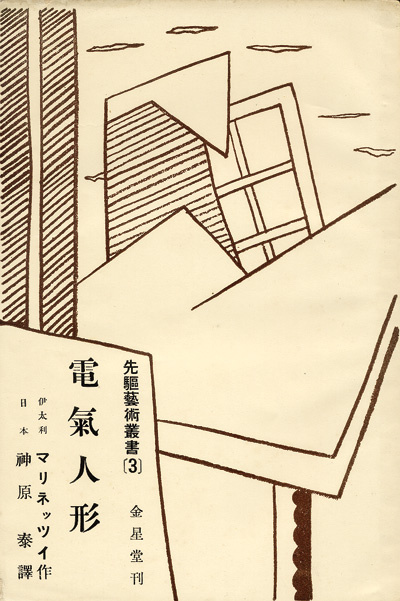 先驅藝術叢書〔3〕
金星堂刊
電氣人形
伊太利 マリネッツイ作
日本 神原泰譯